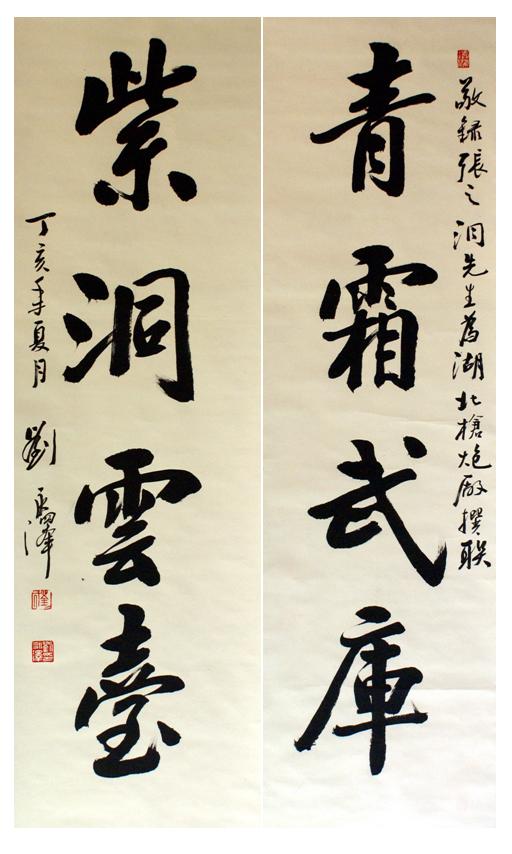 敬録張之洞先生為湖北槍炮廠撰联
青霜武庫
紫洞雲臺
丁亥年夏月 劉